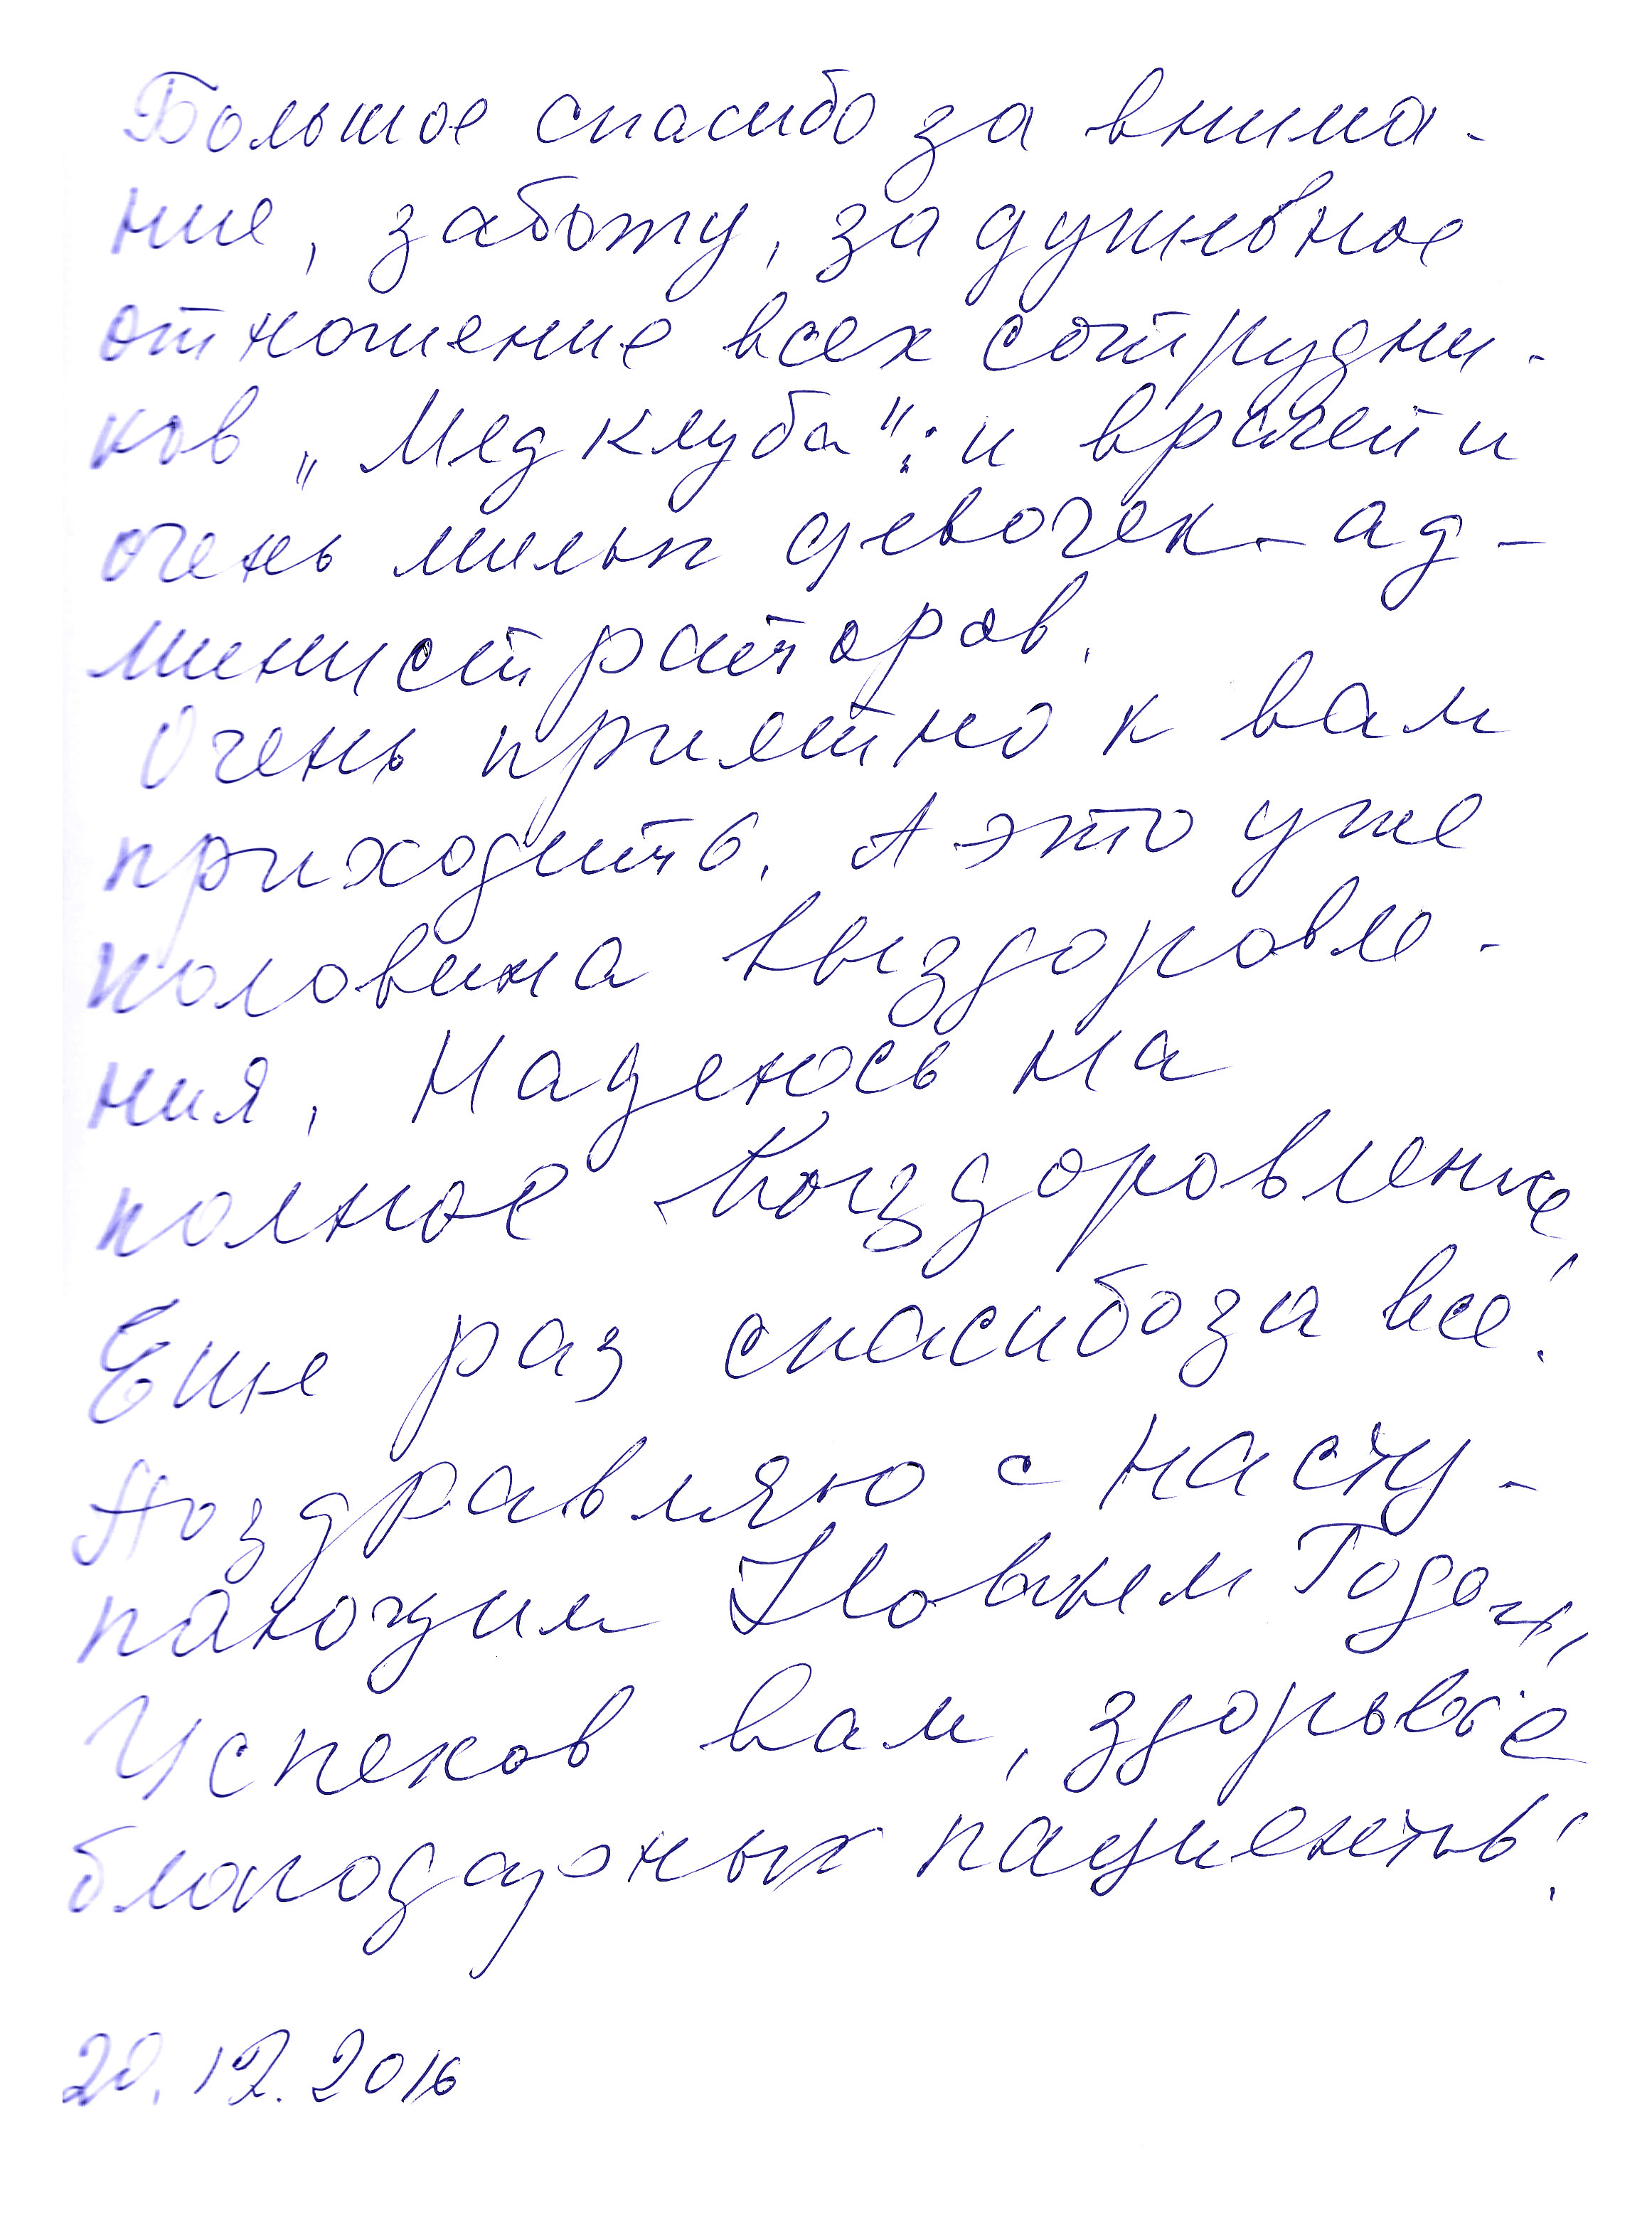 Большое спасибо за внима-
ние, заботу, за душевное
отношение всех сотрудни-
ков „Медклуба": и врачей и
очень милых девочек-ад-
министраторов.
Очень приятно к вам
приходить. А это уже
половина выздоровле-
ния. Надеюсь на
полное выздоровление.
Еще раз спасибо за всё!
Поздравляю с насту-
пающим Новым Годом,
Успехов вам, здоровья и
благодарных пациентов!
20.12.2016